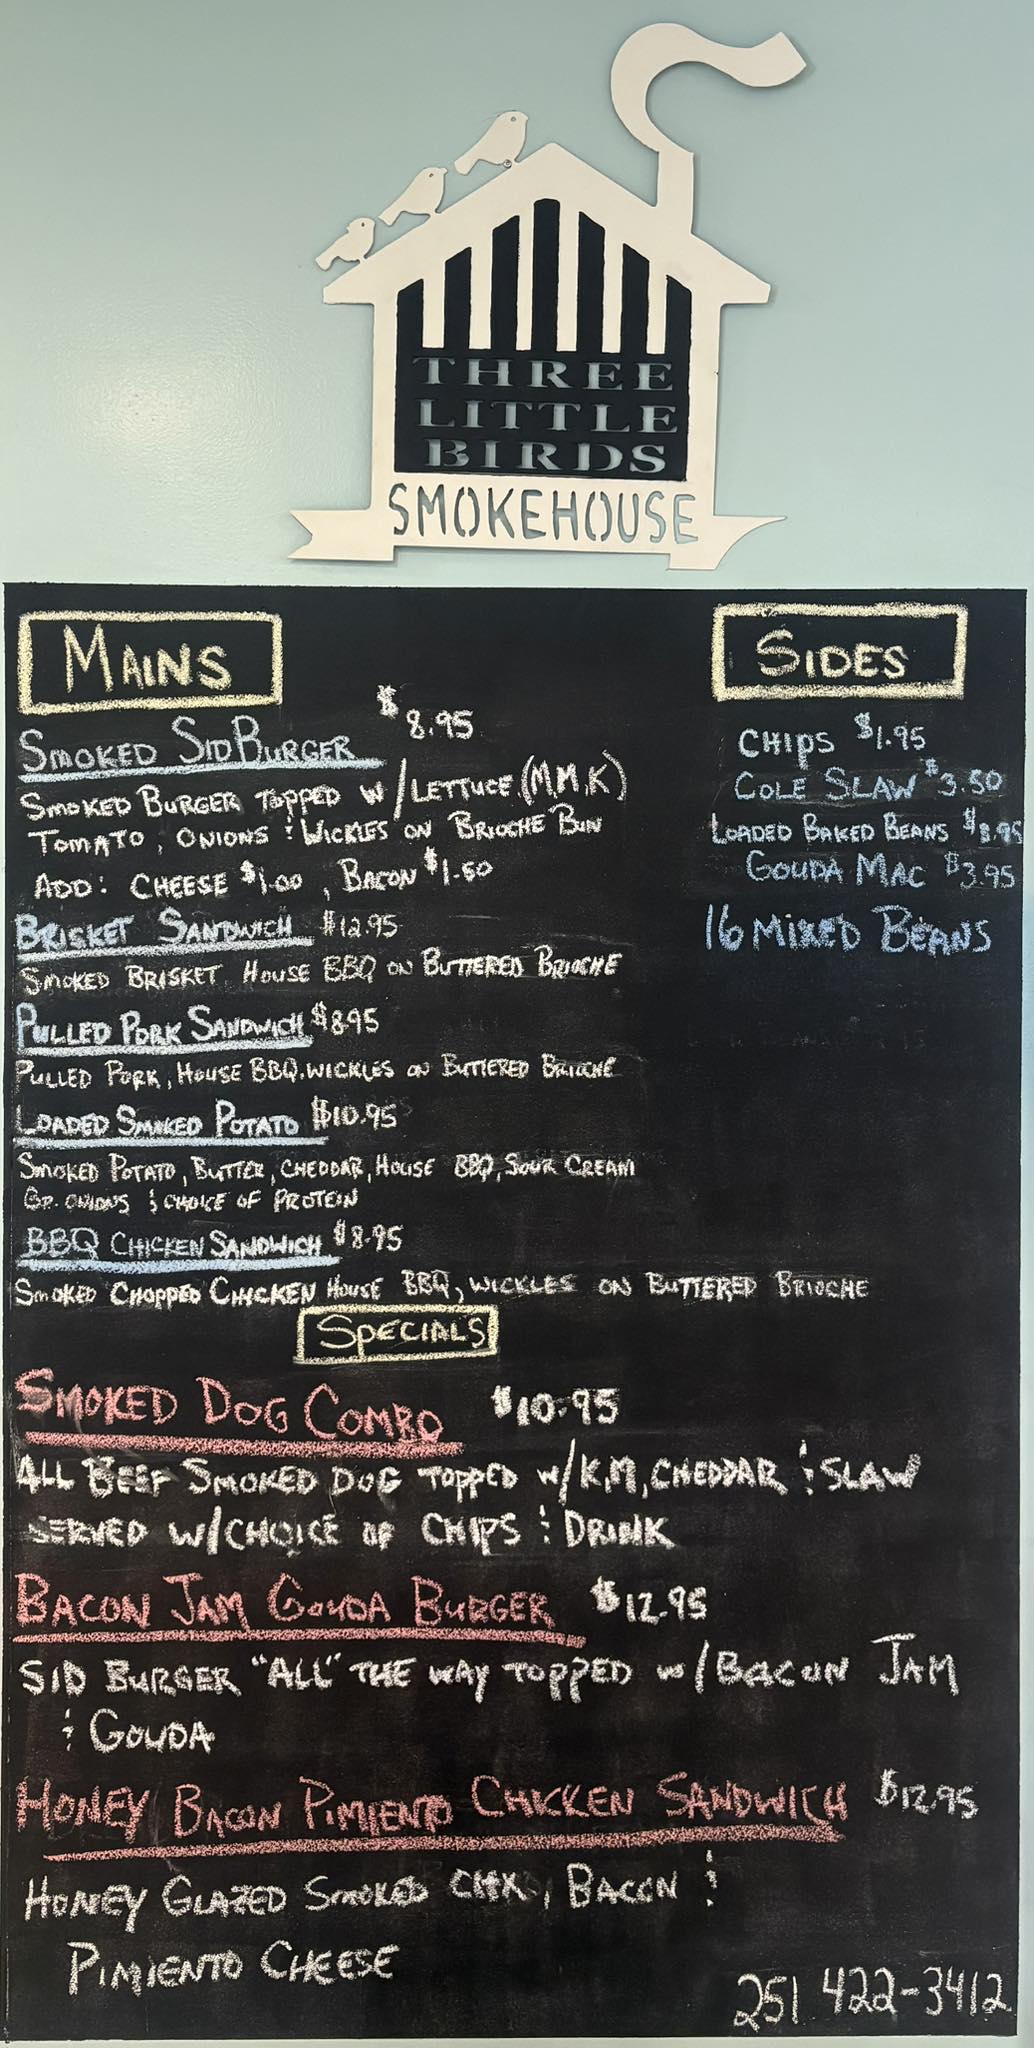 THREE
LITTLE
BIRDS
SMOKEHOUSE
MAINS
SMOKED SIDBURGER $8.95
SMOKED BURGER TOPPED W/LETTUCE (M,M,K)
TOMATO, ONIONS & WICKLES ON BRIOCHE BUN
ADD: CHEESE $1.00, BACON $1.50
BRISKET SANDWICH $12.95
SMOKED BRISKET HOUSE BBQ ON BUTTERED BRIOCHE
PULLED PORK SANDWICH $8.95
PULLED PORK, HOUSE BBQ, WICKLES ON BUTTERED BRIOCHE
LOADED SMOKED POTATO $10.95
SMOKED POTATO, BUTTER, CHEDDAR, HOUSE BBQ, SOUR CREAM
GR. ONIONS & CHOICE OF PROTEIN
BBQ CHICKEN SANDWICH $8.95
SMOKED CHOPPED CHICKEN HOUSE BBQ, WICKLES ON BUTTERED BRIOCHE
SIDES
CHIPS $1.95
COLE SLAW $3.50
LOADED BAKED BEANS $8.95
GOUDA MAC $3.95
16 MIXED BEANS
SPECIALS
SMOKED DOG COMBO $10.95
ALL BEEF SMOKED DOG TOPPED W/K,M, CHEDDAR & SLAW
SERVED W/CHOICE OF CHIPS & DRINK
BACON JAM GOUDA BURGER $12.95
SID BURGER "ALL" THE WAY TOPPED W/BACON JAM
& GOUDA
HONEY BACON PIMIENTO CHICKEN SANDWICH $12.95
HONEY GLAZED SMOKED CHX, BACON &
PIMIENTO CHEESE
251 422-3412